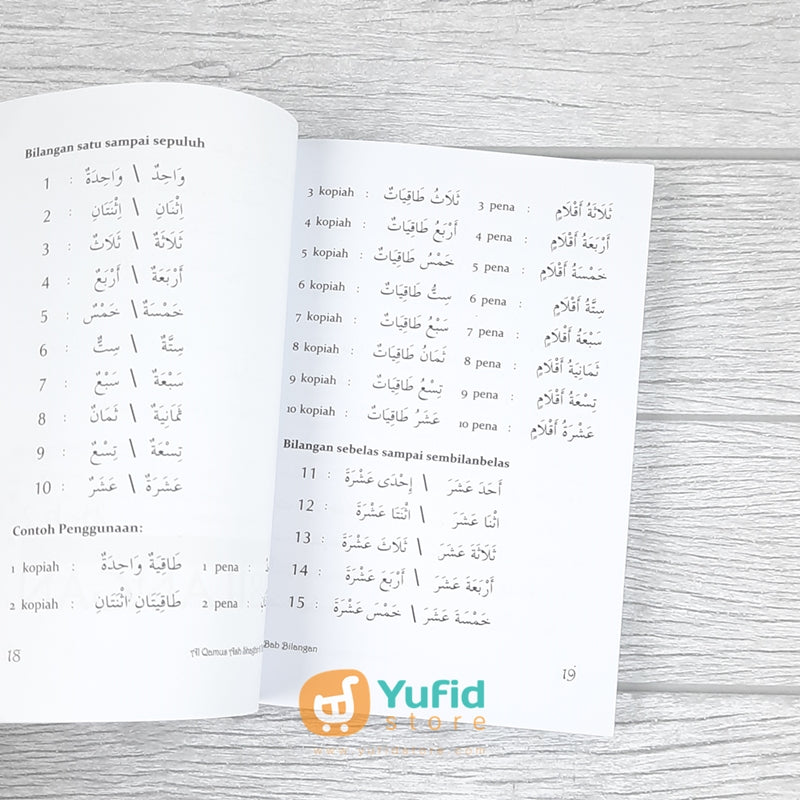 Bilangan satu sampai sepuluh
1 : وَاحِدٌ \ وَاحِدَةٌ
2 : اِثْنَانِ \ اِثْنَتَانِ
3 : ثَلَاثَةٌ \ ثَلَاثٌ
4 : أَرْبَعَةٌ \ أَرْبَعٌ
5 : خَمْسَةٌ \ خَمْسٌ
6 : سِتَّةٌ \ سِتٌّ
7 : سَبْعَةٌ \ سَبْعٌ
8 : ثَمَانِيَةٌ \ ثَمَانٌ
9 : تِسْعَةٌ \ تِسْعٌ
10 : عَشَرَةٌ \ عَشَرٌ
Contoh Penggunaan:
1 kopiah : طَاقِيَةٌ وَاحِدَةٌ 1 pena :
2 kopiah : طَاقِيَتَانِ اثْنَتَانِ 2 pena :
18 Al Qamus Ash Shaghir
3 kopiah : ثَلَاثُ طَاقِيَاتٌ 3 pena : ثَلَاثَةُ أَقْلَامٍ
4 kopiah : أَرْبَعُ طَاقِيَاتٌ 4 pena : أَرْبَعَةُ أَقْلَامٍ
5 kopiah : خَمْسُ طَاقِيَاتٌ 5 pena : خَمْسَةُ أَقْلَامٍ
6 kopiah : سِتُّ طَاقِيَاتٌ 6 pena : سِتَّةُ أَقْلَامٍ
7 kopiah : سَبْعُ طَاقِيَاتٌ 7 pena : سَبْعَةُ أَقْلَامٍ
8 kopiah : ثَمَانُ طَاقِيَاتٌ 8 pena : ثَمَانِيَةُ أَقْلَامٍ
9 kopiah : تِسْعُ طَاقِيَاتٌ 9 pena : تِسْعَةُ أَقْلَامٍ
10 kopiah : عَشَرُ طَاقِيَاتٌ 10 pena : عَشْرَةُ أَقْلَامٍ
Bilangan sebelas sampai sembilanbelas
11 : أَحَدَ عَشَرَ \ إِحْدَى عَشْرَةَ
12 : اثْنَا عَشَرَ \ اثْنَتَا عَشْرَةَ
13 : ثَلَاثَةَ عَشَرَ \ ثَلَاثَ عَشْرَةَ
14 : أَرْبَعَةَ عَشَرَ \ أَرْبَعَ عَشْرَةَ
15 : خَمْسَةَ عَشَرَ \ خَمْسَ عَشْرَةَ
Bab Bilangan 19
Yufid
store